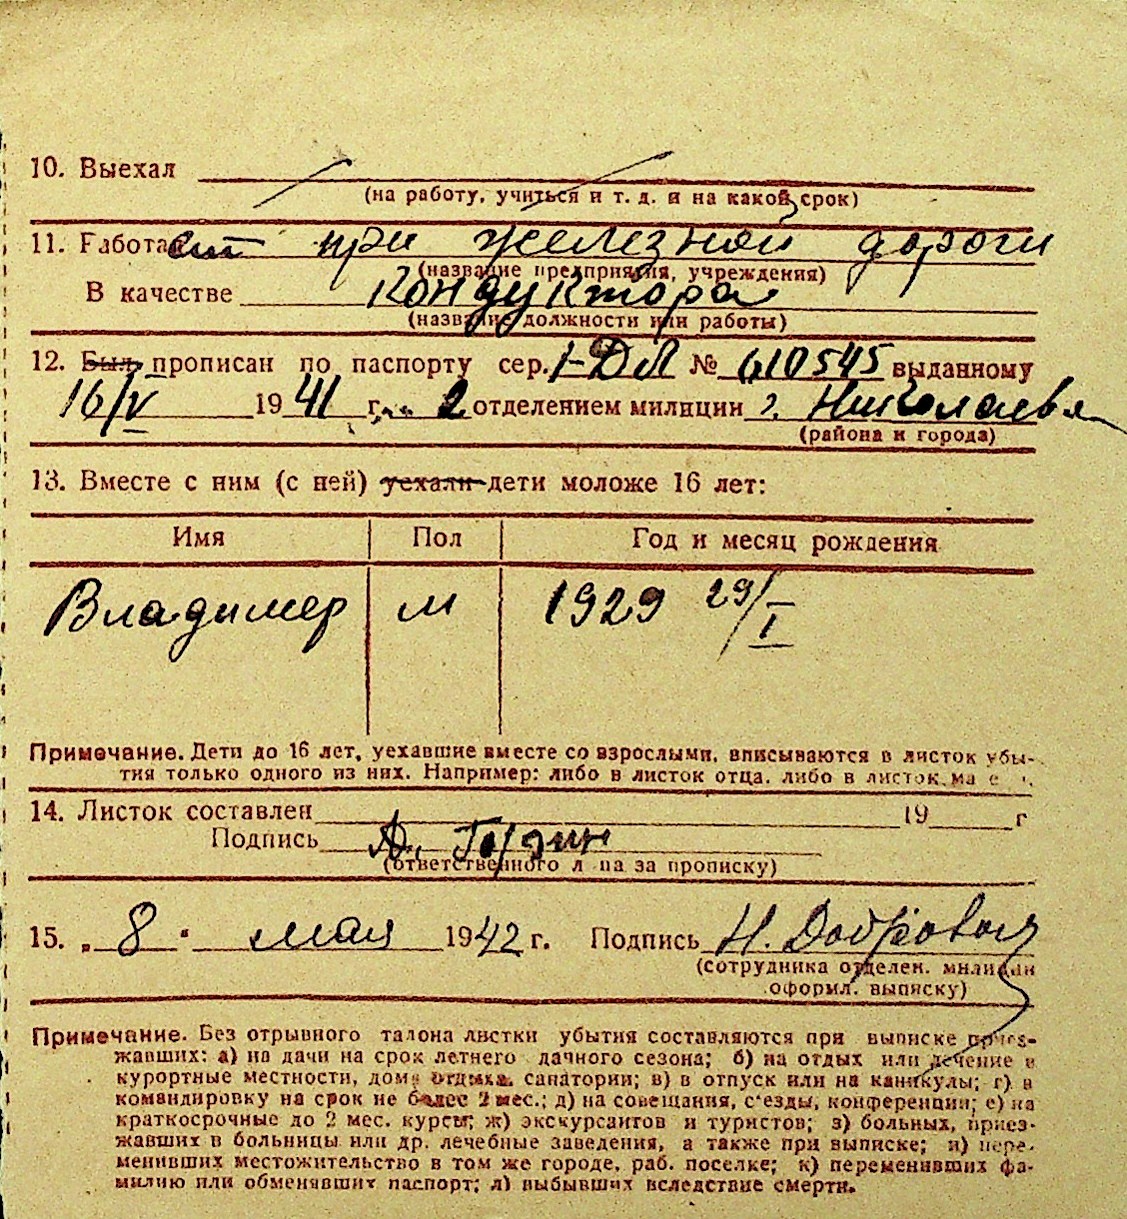 10. Выехал
(на работу, учиться и т. д. и на какой срок)
11. Работает при железной дороги
(название предприятия, учреждения)
В качестве Кондуктора
(название должности или работы)
12. Был прописан по паспорту сер. I-ДЛ № 610545 выданному
16/V 1941 г. 2 отделением милиции г. Николаева
(района и города)
13. Вместе с ним (с ней) уехали дети моложе 16 лет:
Имя Пол Год и месяц рождения
Владимер м 1929 29/I
Примечание. Дети до 16 лет, уехавшие вместе со взрослыми, вписываются в листок убы-
тия только одного из них. Например: либо в листок отца, либо в листок
14. Листок составлен 19 г
Подпись
(ответственного л ца за прописку)
15. „ 8 " мая 1942 г. Подпись Н.
(сотрудника отделен. милиции
оформл. выписку)
Примечание. Без отрывного талона листки убытия составляются при выписке приез-
жавших: а) на дачи на срок летнего дачного сезона; б) на отдых или лечение в
курортные местности, дома отдыха, санатории; в) в отпуск или на каникулы; г) в
командировку на срок не более 2 мес.; д) на совещания, с'езды, конференции; е) на
краткосрочные до 2 мес. курсы; ж) экскурсантов и туристов; з) больных, приез-
жавших в больницы или др. лечебные заведения, а также при выписке; и) пере-
менивших местожительство в том же городе, раб. поселке; к) переменивших фа-
милию или обменявших паспорт; л) выбывших вследствие смерти.